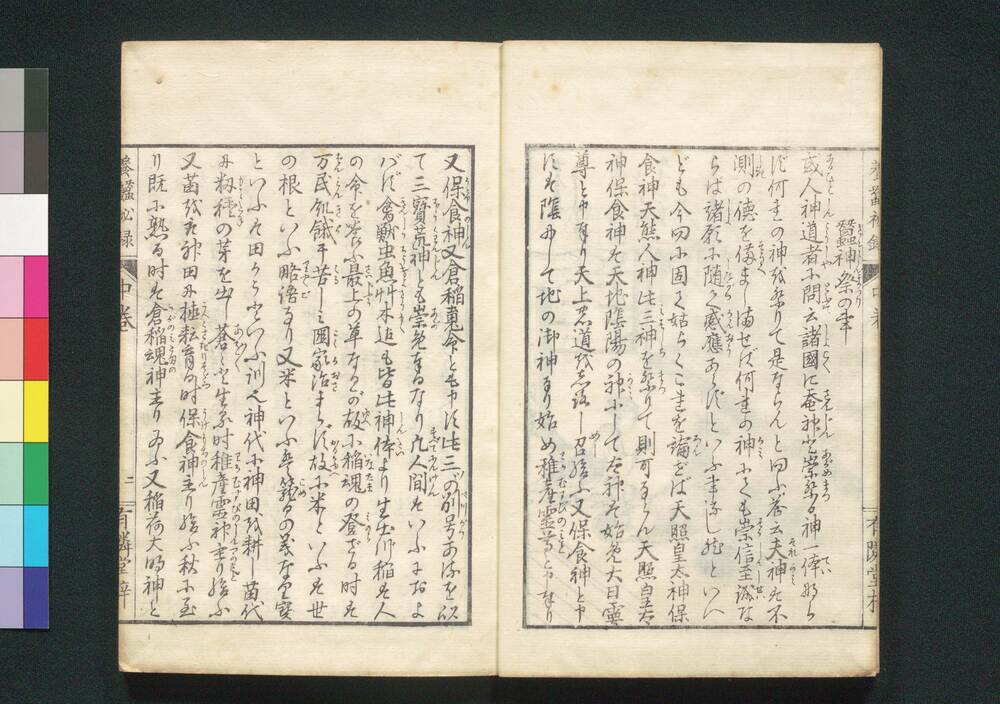 養蚕秘録
中巻
有隣堂梓
蠶神祭の事
或人神道者に問云諸國に蚕神と崇祭る神一体ならず
何れの神を祭りて是ならんと問ふ答云夫神は不
測の徳を備まします世ば何れの神にても崇信至誠な
らば諸願に随ひ感應あらずといふ事なし然といへ
ども今問に固く姑らくこれを論ぜば天照皇太神保
食神天熊人神此三神を祭りて則可ならん天照皇太
神保食神は天地陰陽の神にして太神は始め大日孁
尊と申なり天上の道を志ろし召給ふ又保食神と申
は陰にして地の御神なり始め稚産霊尊と申なり
又保食神又倉稲魂命とも申す此三の別号あるを以
て三寶荒神とも崇奉るなり凡人間はいふにおよ
ばず禽獣虫魚艸木迄も皆此神体より生出稲は人
の命を養ふ最上の草なるが故に稲魂の登ざる時は
万民飢餓に苦しみ國家治まらず故に米といふは世
の根といふ略語なり又米といふは籠るの義なり實
といふは田からといふ訓也神代に神田を耕し苗代
に籾種の芽を出し蒼々と生る時稚産霊神主り給ふ
又苗を神田に植耘育る時保食神主り給ふ秋に至
り既に熟る時は倉稲魂神主り給ふ又稲荷大明神と
養蠶秘録
中巻
二
有隣堂梓